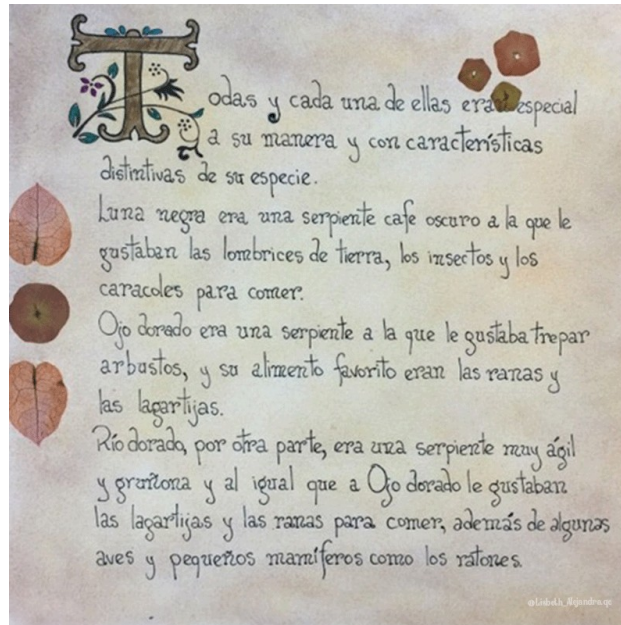 Todas y cada una de ellas eran especial
a su manera y con características
distintivas de su especie.
Luna negra era una serpiente cafe oscuro a la que le
gustaban las lombrices de tierra, los insectos y los
caracoles para comer.
Ojo dorado era una serpiente a la que le gustaba trepar
arbustos, y su alimento favorito eran las ranas y
las lagartijas.
Río dorado, por otra parte, era una serpiente muy ágil
y gruñona y al igual que a Ojo dorado le gustaban
las lagartijas y las ranas para comer, además de algunas
aves y pequeños mamíferos como los ratones.
@Lisbeth_Alejandra.qc